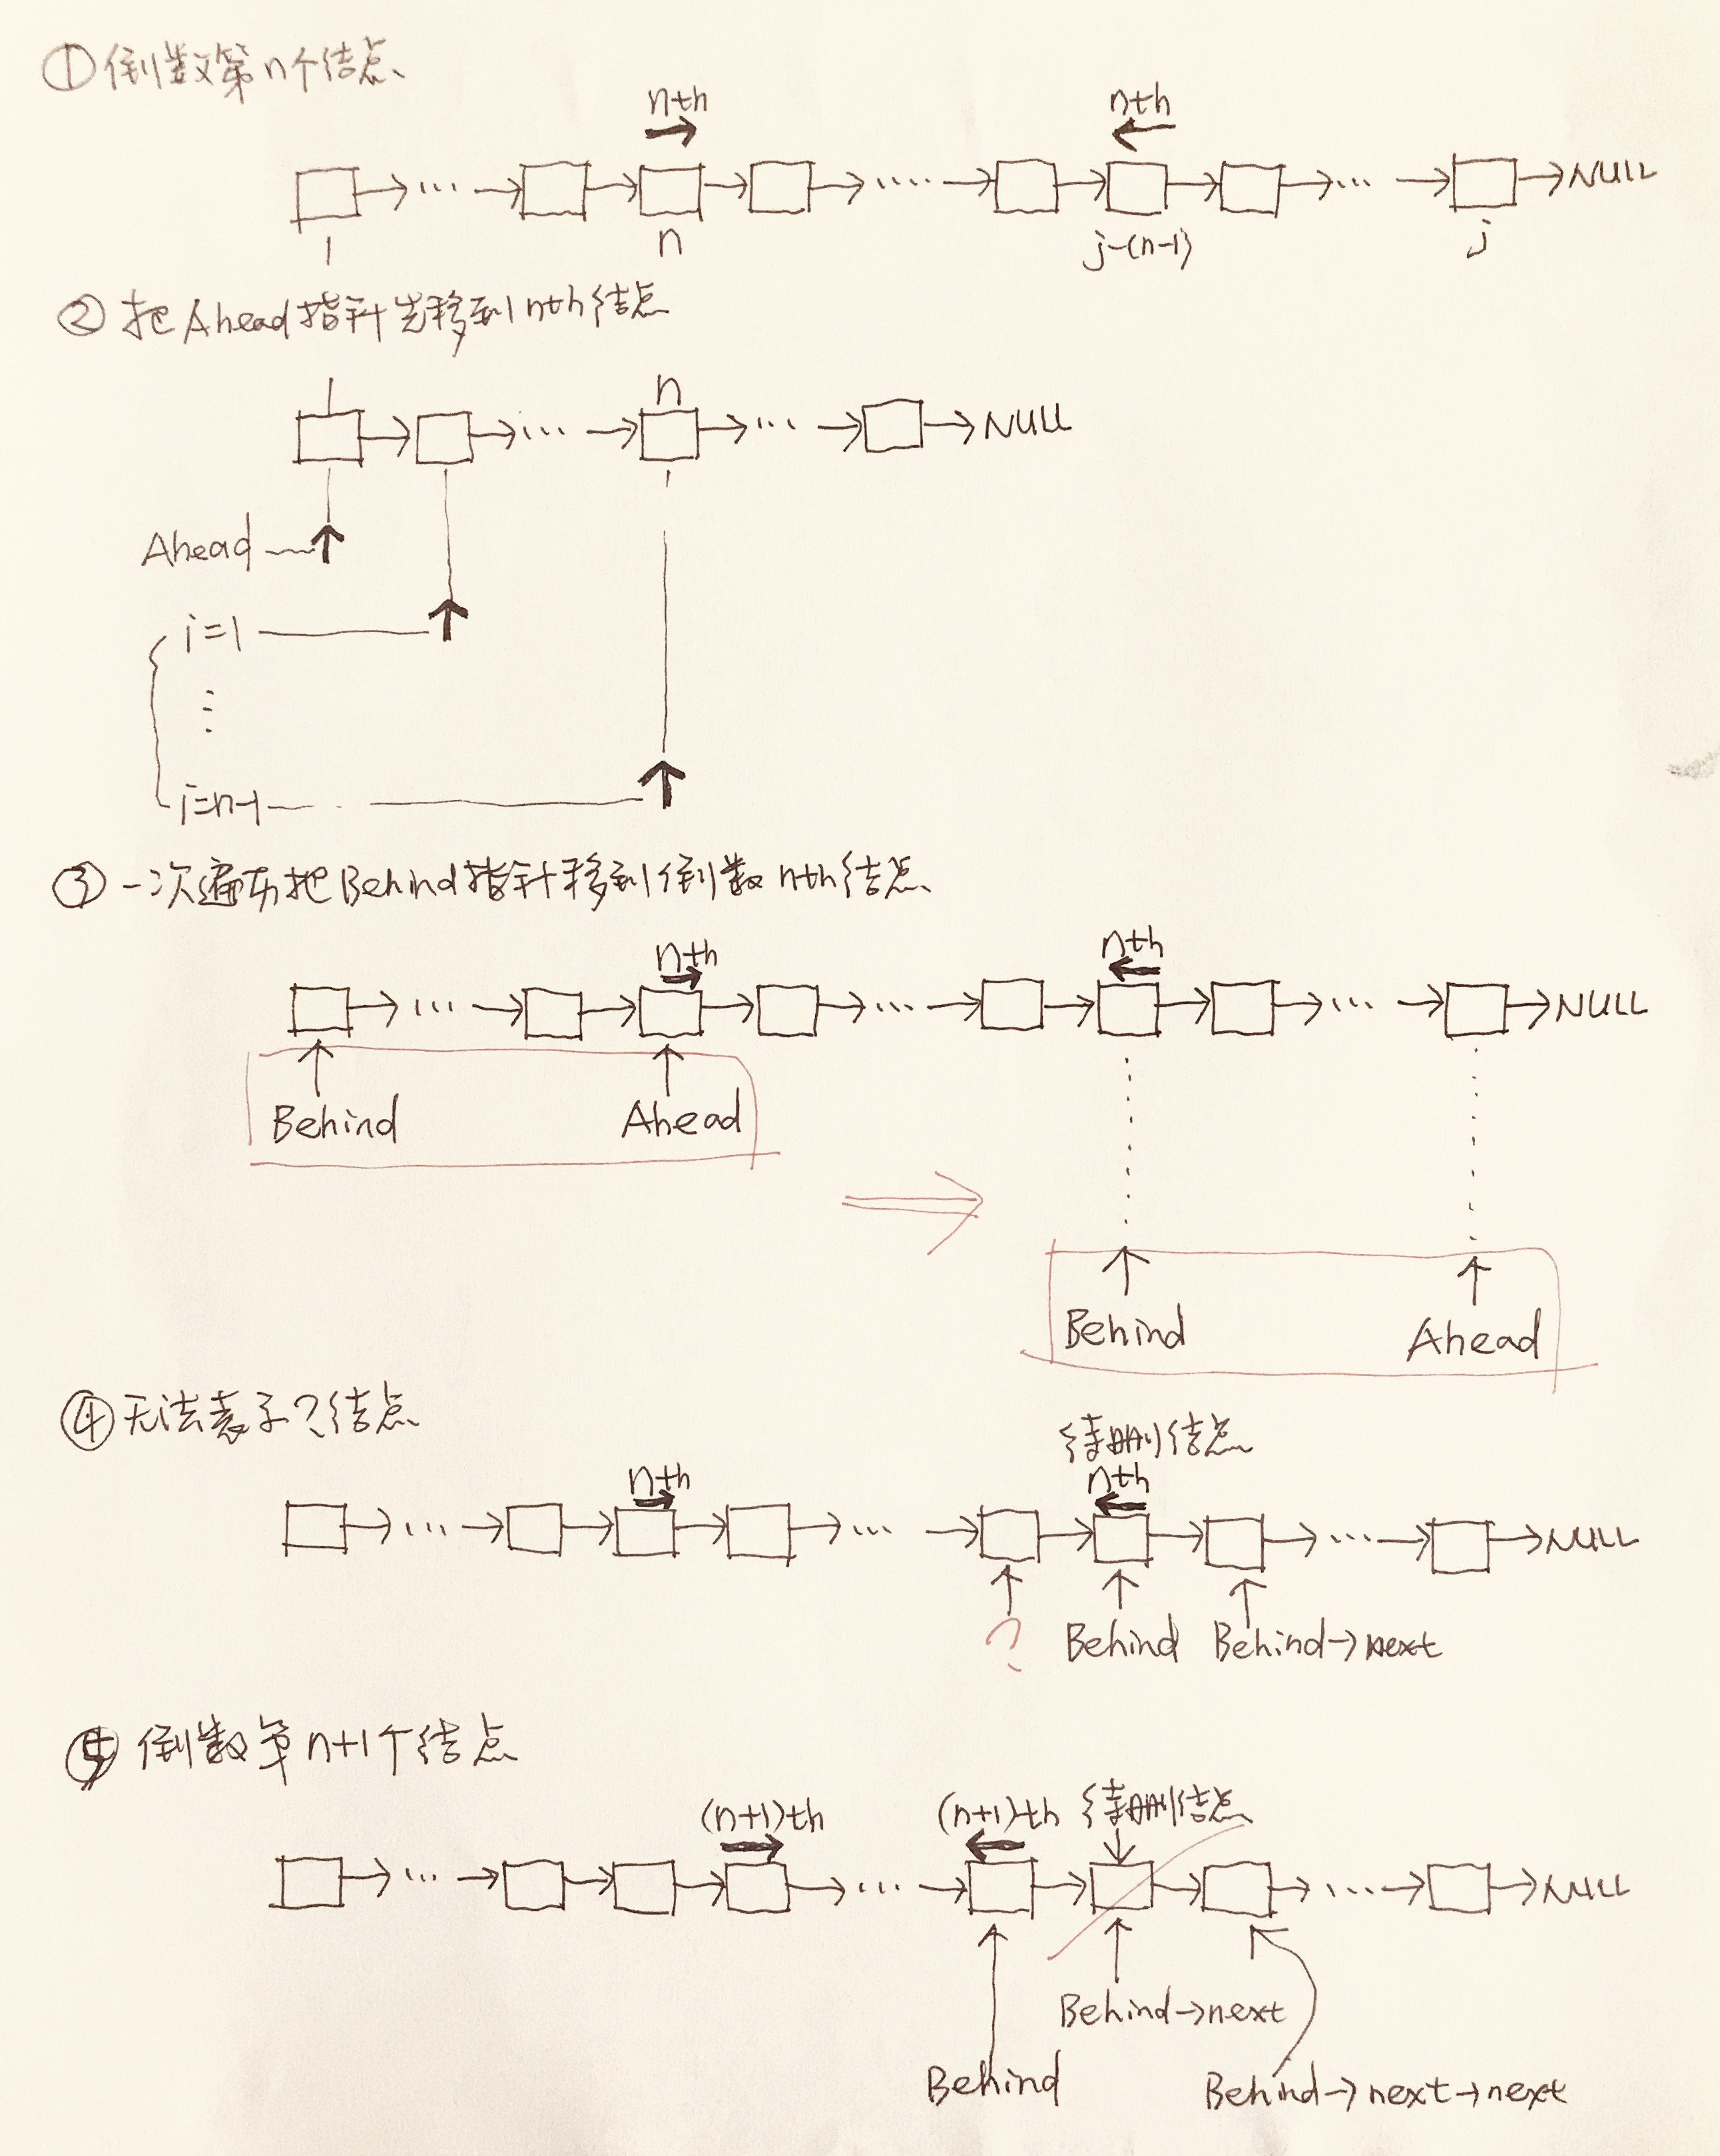 ①倒数第n个结点
nth nth
→ ... → → → → .... → → → → ... → → NULL
1 n j-(n-1) j
②把Ahead指针先移到nth结点
1 n
→ → ... → → ... → → NULL
Ahead
i=1
⋮
i=n-1
③一次遍历把Behind指针移到倒数nth结点
nth nth
→ ... → → → → ... → → → → ... → → NULL
Behind Ahead
Behind Ahead
④无法表示?结点
待删结点
nth nth
→ ... → → → → ... → → → → ... → → NULL
? Behind Behind→next
⑤倒数第n+1个结点
(n+1)th (n+1)th 待删结点
→ ... → → → → ... → → → → ... → → NULL
Behind→next
Behind Behind→next→next